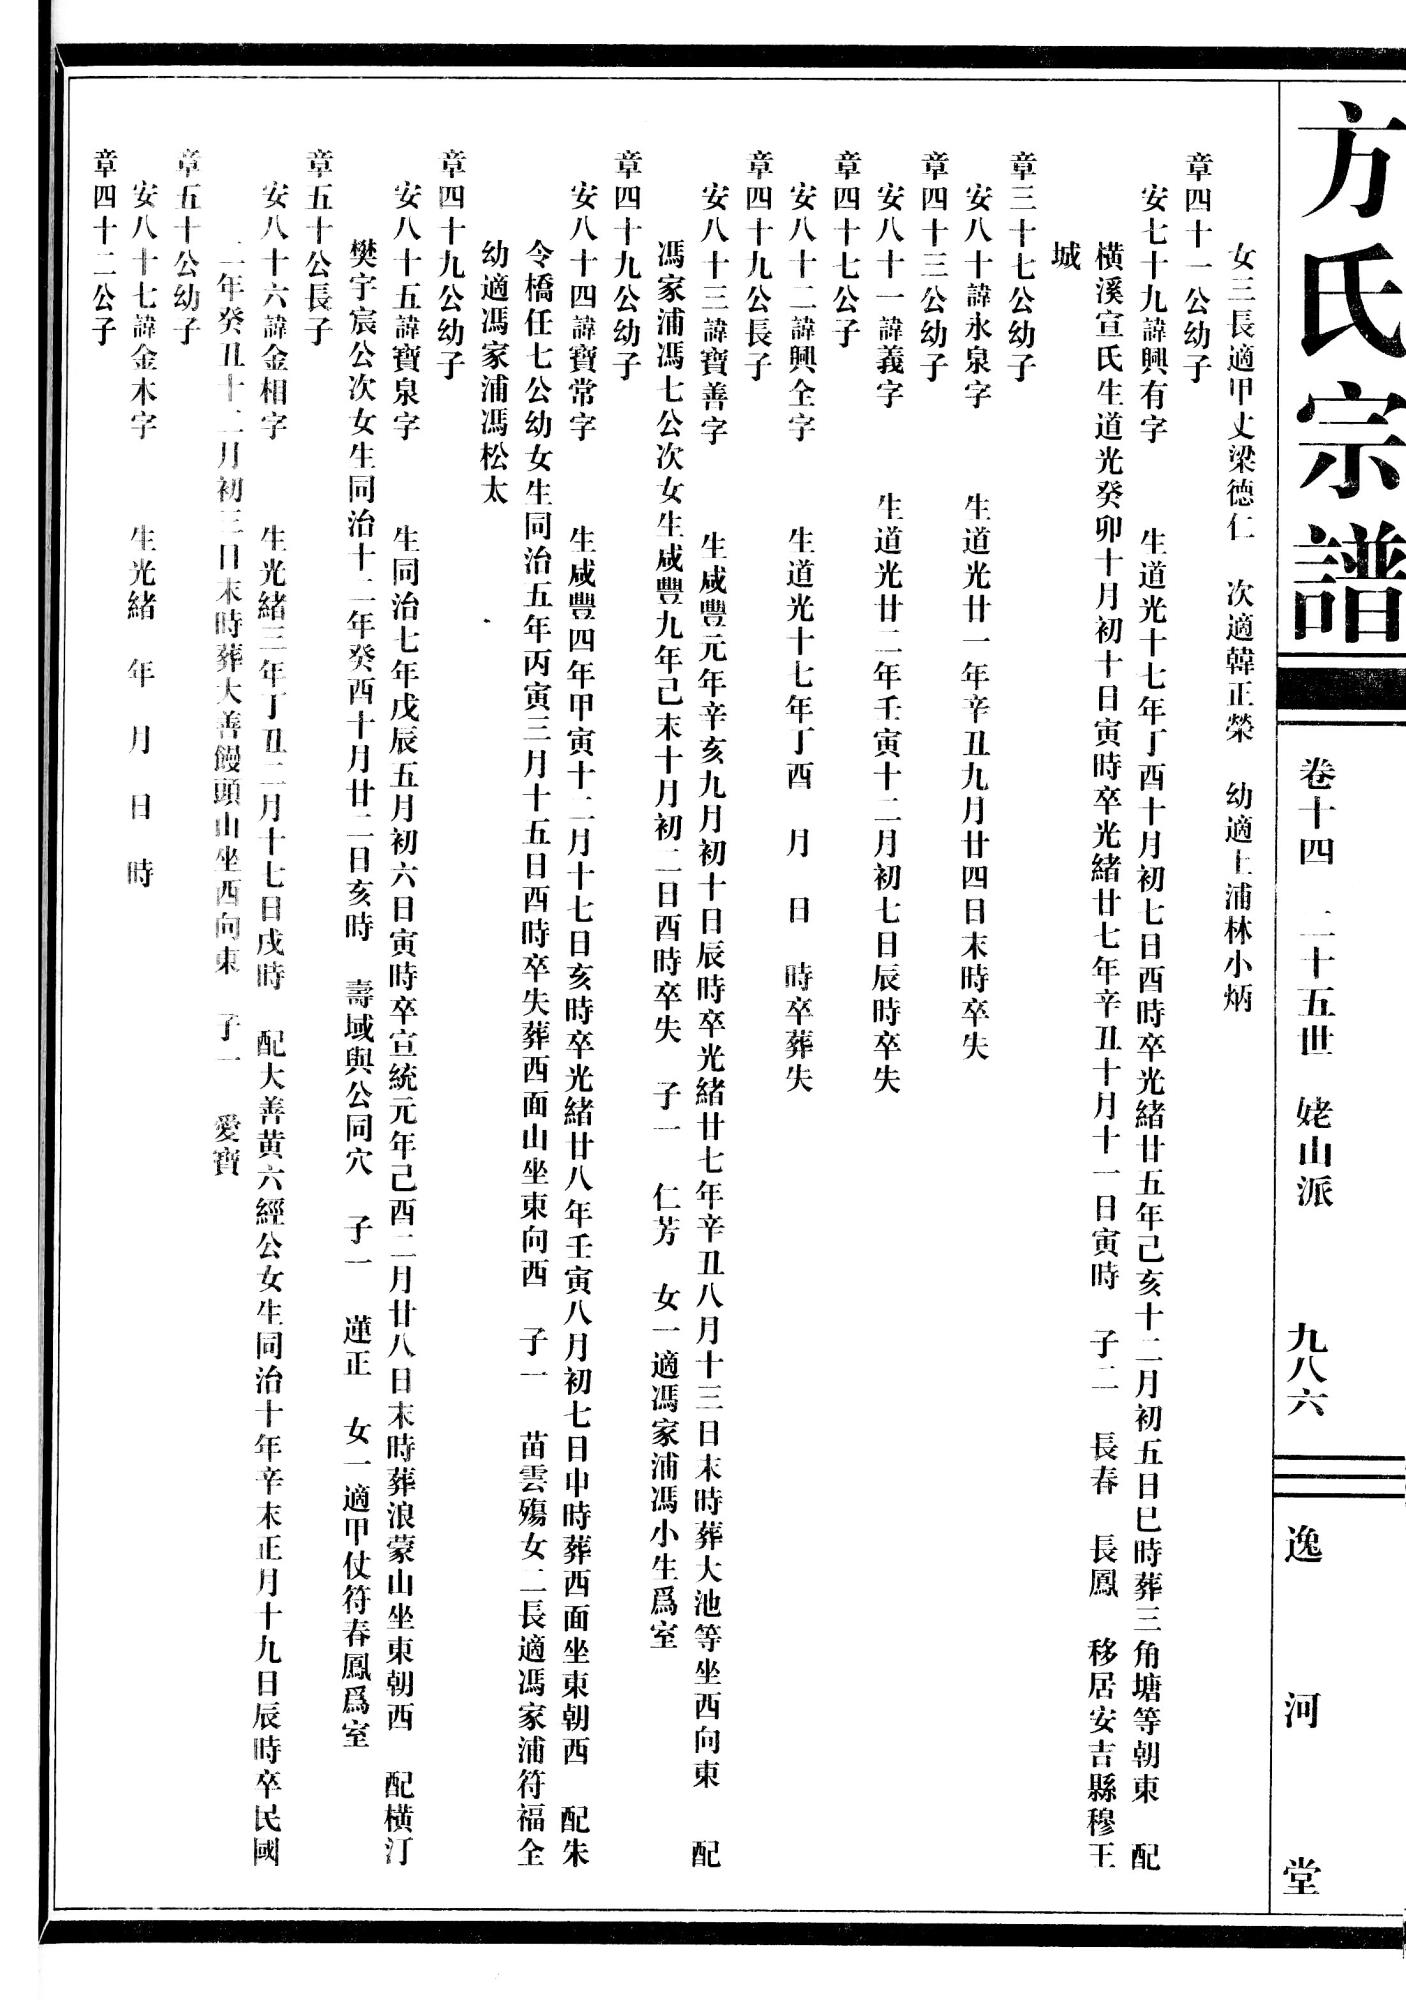 方氏宗譜
卷十四　二十五世　姥山派　九八六
逸河堂
女三長適甲丈梁德仁　次適韓正榮　幼適上浦林小炳
章四十一公幼子
安七十九諱興有字　生道光十七年丁酉十月初七日酉時卒光緒廿五年己亥十二月初五日巳時葬三角塘等朝東　配
橫溪宣氏生道光癸卯十月初十日寅時卒光緒廿七年辛丑十月十一日寅時　子二　長春　長鳳　移居安吉縣穆王
城
章三十七公幼子
安八十諱永泉字　生道光廿一年辛丑九月廿四日未時卒失
章四十三公幼子
安八十一諱義字　生道光廿二年壬寅十二月初七日辰時卒失
章四十七公子
安八十二諱興全字　生道光十七年丁酉　月　日　時卒葬失
章四十九公長子
安八十三諱寶善字　生咸豐元年辛亥九月初十日辰時卒光緒廿七年辛丑八月十三日未時葬大池等坐西向東　配
馮家浦馮七公次女生咸豐九年己未十月初二日酉時卒失　子一　仁芳　女一適馮家浦馮小生爲室
章四十九公幼子
安八十四諱寶常字　生咸豐四年甲寅十二月十七日亥時卒光緒廿八年壬寅八月初七日申時葬西面坐東朝西　配朱
令橋任七公幼女生同治五年丙寅三月十五日酉時卒失葬西面山坐東向西　子一　苗雲殤女二長適馮家浦符福全
幼適馮家浦馮松太
章四十九公幼子
安八十五諱寶泉字　生同治七年戊辰五月初六日寅時卒宣統元年己酉二月廿八日未時葬浪蒙山坐東朝西　配橫汀
樊宇宸公次女生同治十二年癸酉十月廿二日亥時　壽域與公同穴　子一　蓮正　女一適甲仗符春鳳爲室
章五十公長子
安八十六諱金相字　生光緒三年丁丑二月十七日戌時　配大善黄六經公女生同治十年辛未正月十九日辰時卒民國
二年癸丑十二月初三日未時葬大善饅頭山坐西向東　子一　愛寶
章五十公幼子
安八十七諱金木字　生光緒　年　月　日　時
章四十二公子